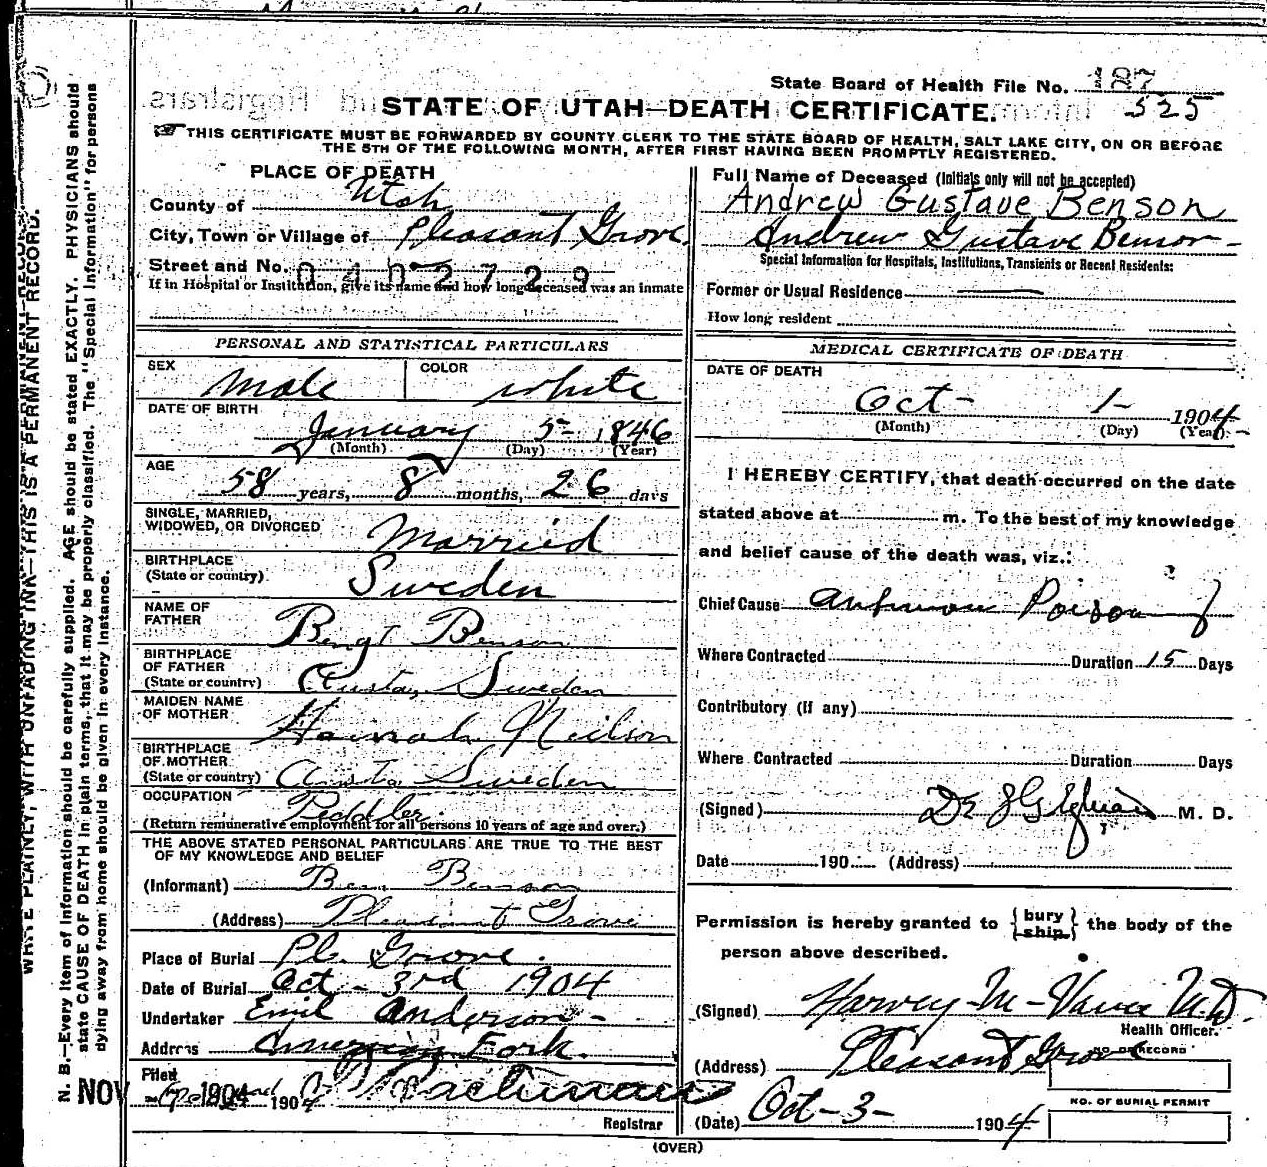 State Board of Health File No. 187
525
STATE OF UTAH—DEATH CERTIFICATE.
THIS CERTIFICATE MUST BE FORWARDED BY COUNTY CLERK TO THE STATE BOARD OF HEALTH, SALT LAKE CITY, ON OR BEFORE
THE 5TH OF THE FOLLOWING MONTH, AFTER FIRST HAVING BEEN PROMPTLY REGISTERED.
PLACE OF DEATH
County of Utah
City, Town or Village of Pleasant Grove.
Street and No. 0402729
If in Hospital or Institution, give its name and how long deceased was an inmate
Full Name of Deceased (Initials only will not be accepted)
Andrew Gustave Benson
Andrew Gustave Benson
Special Information for Hospitals, Institutions, Transients or Recent Residents:
Former or Usual Residence
How long resident
PERSONAL AND STATISTICAL PARTICULARS
SEX Male COLOR white
DATE OF BIRTH
January 5 1846
(Month) (Day) (Year)
AGE
58 years, 8 months, 26 days
SINGLE, MARRIED,
WIDOWED, OR DIVORCED Married
BIRTHPLACE
(State or country) Sweden
NAME OF
FATHER Bengt Benson
BIRTHPLACE
OF FATHER
(State or country) Sweden
MAIDEN NAME
OF MOTHER Hannah Neilson
BIRTHPLACE
OF MOTHER
(State or country) Sweden
OCCUPATION Peddler
(Return remunerative employment for all persons 10 years of age and over.)
THE ABOVE STATED PERSONAL PARTICULARS ARE TRUE TO THE BEST
OF MY KNOWLEDGE AND BELIEF
(Informant) Ben Benson
(Address) Pleasant Grove
Place of Burial Pl. Grove.
Date of Burial Oct - 3rd 1904
Undertaker Emil Anderson
Address American Fork.
Filed
NOV 1904 1904
Registrar
MEDICAL CERTIFICATE OF DEATH
DATE OF DEATH
Oct- 1- 1904
(Month) (Day) (Year)
I HEREBY CERTIFY, that death occurred on the date
stated above at m. To the best of my knowledge
and belief cause of the death was, viz.:
Chief Cause Poisoning
Where Contracted Duration 15 Days
Contributory (if any)
Where Contracted Duration Days
(Signed) Dr M. D.
Date 190 (Address)
Permission is hereby granted to {bury ship} the body of the
person above described.
(Signed) Harvey M Vance M.D.
Health Officer.
(Address) Pleasant Grove
NO. OF RECORD
NO. OF BURIAL PERMIT
(Date) Oct-3- 1904
(OVER)
WRITE PLAINLY, WITH UNFADING INK—THIS IS A PERMANENT RECORD.
N. B.—Every item of information should be carefully supplied. AGE should be stated EXACTLY. PHYSICIANS should
state CAUSE OF DEATH in plain terms, that it may be properly classified. The "Special Information" for persons
dying away from home should be given in every instance.